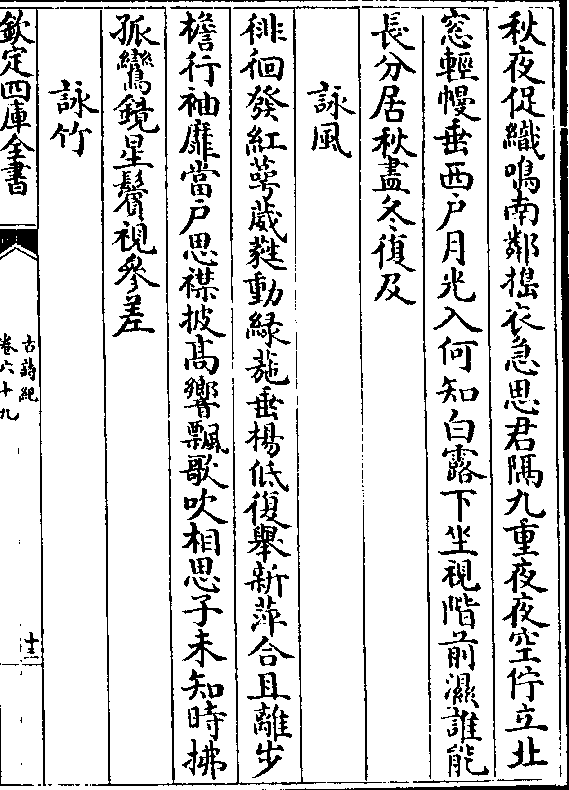 秋夜促織鳴南鄰搗衣急思君隔九重夜夜空佇立北
窓輕幔垂西户月光入何知白露下坐視階前濕誰能
長分居秋盡冬復及
詠風
徘徊發紅萼葳蕤動緑葹垂楊低復舉新萍合且離步
檐行袖靡當户思襟披髙響飄歌吹相思子未知時拂
孤鸞鏡星鬢視參差
詠竹
欽定四庫全書
古詩紀
卷六十九
十三